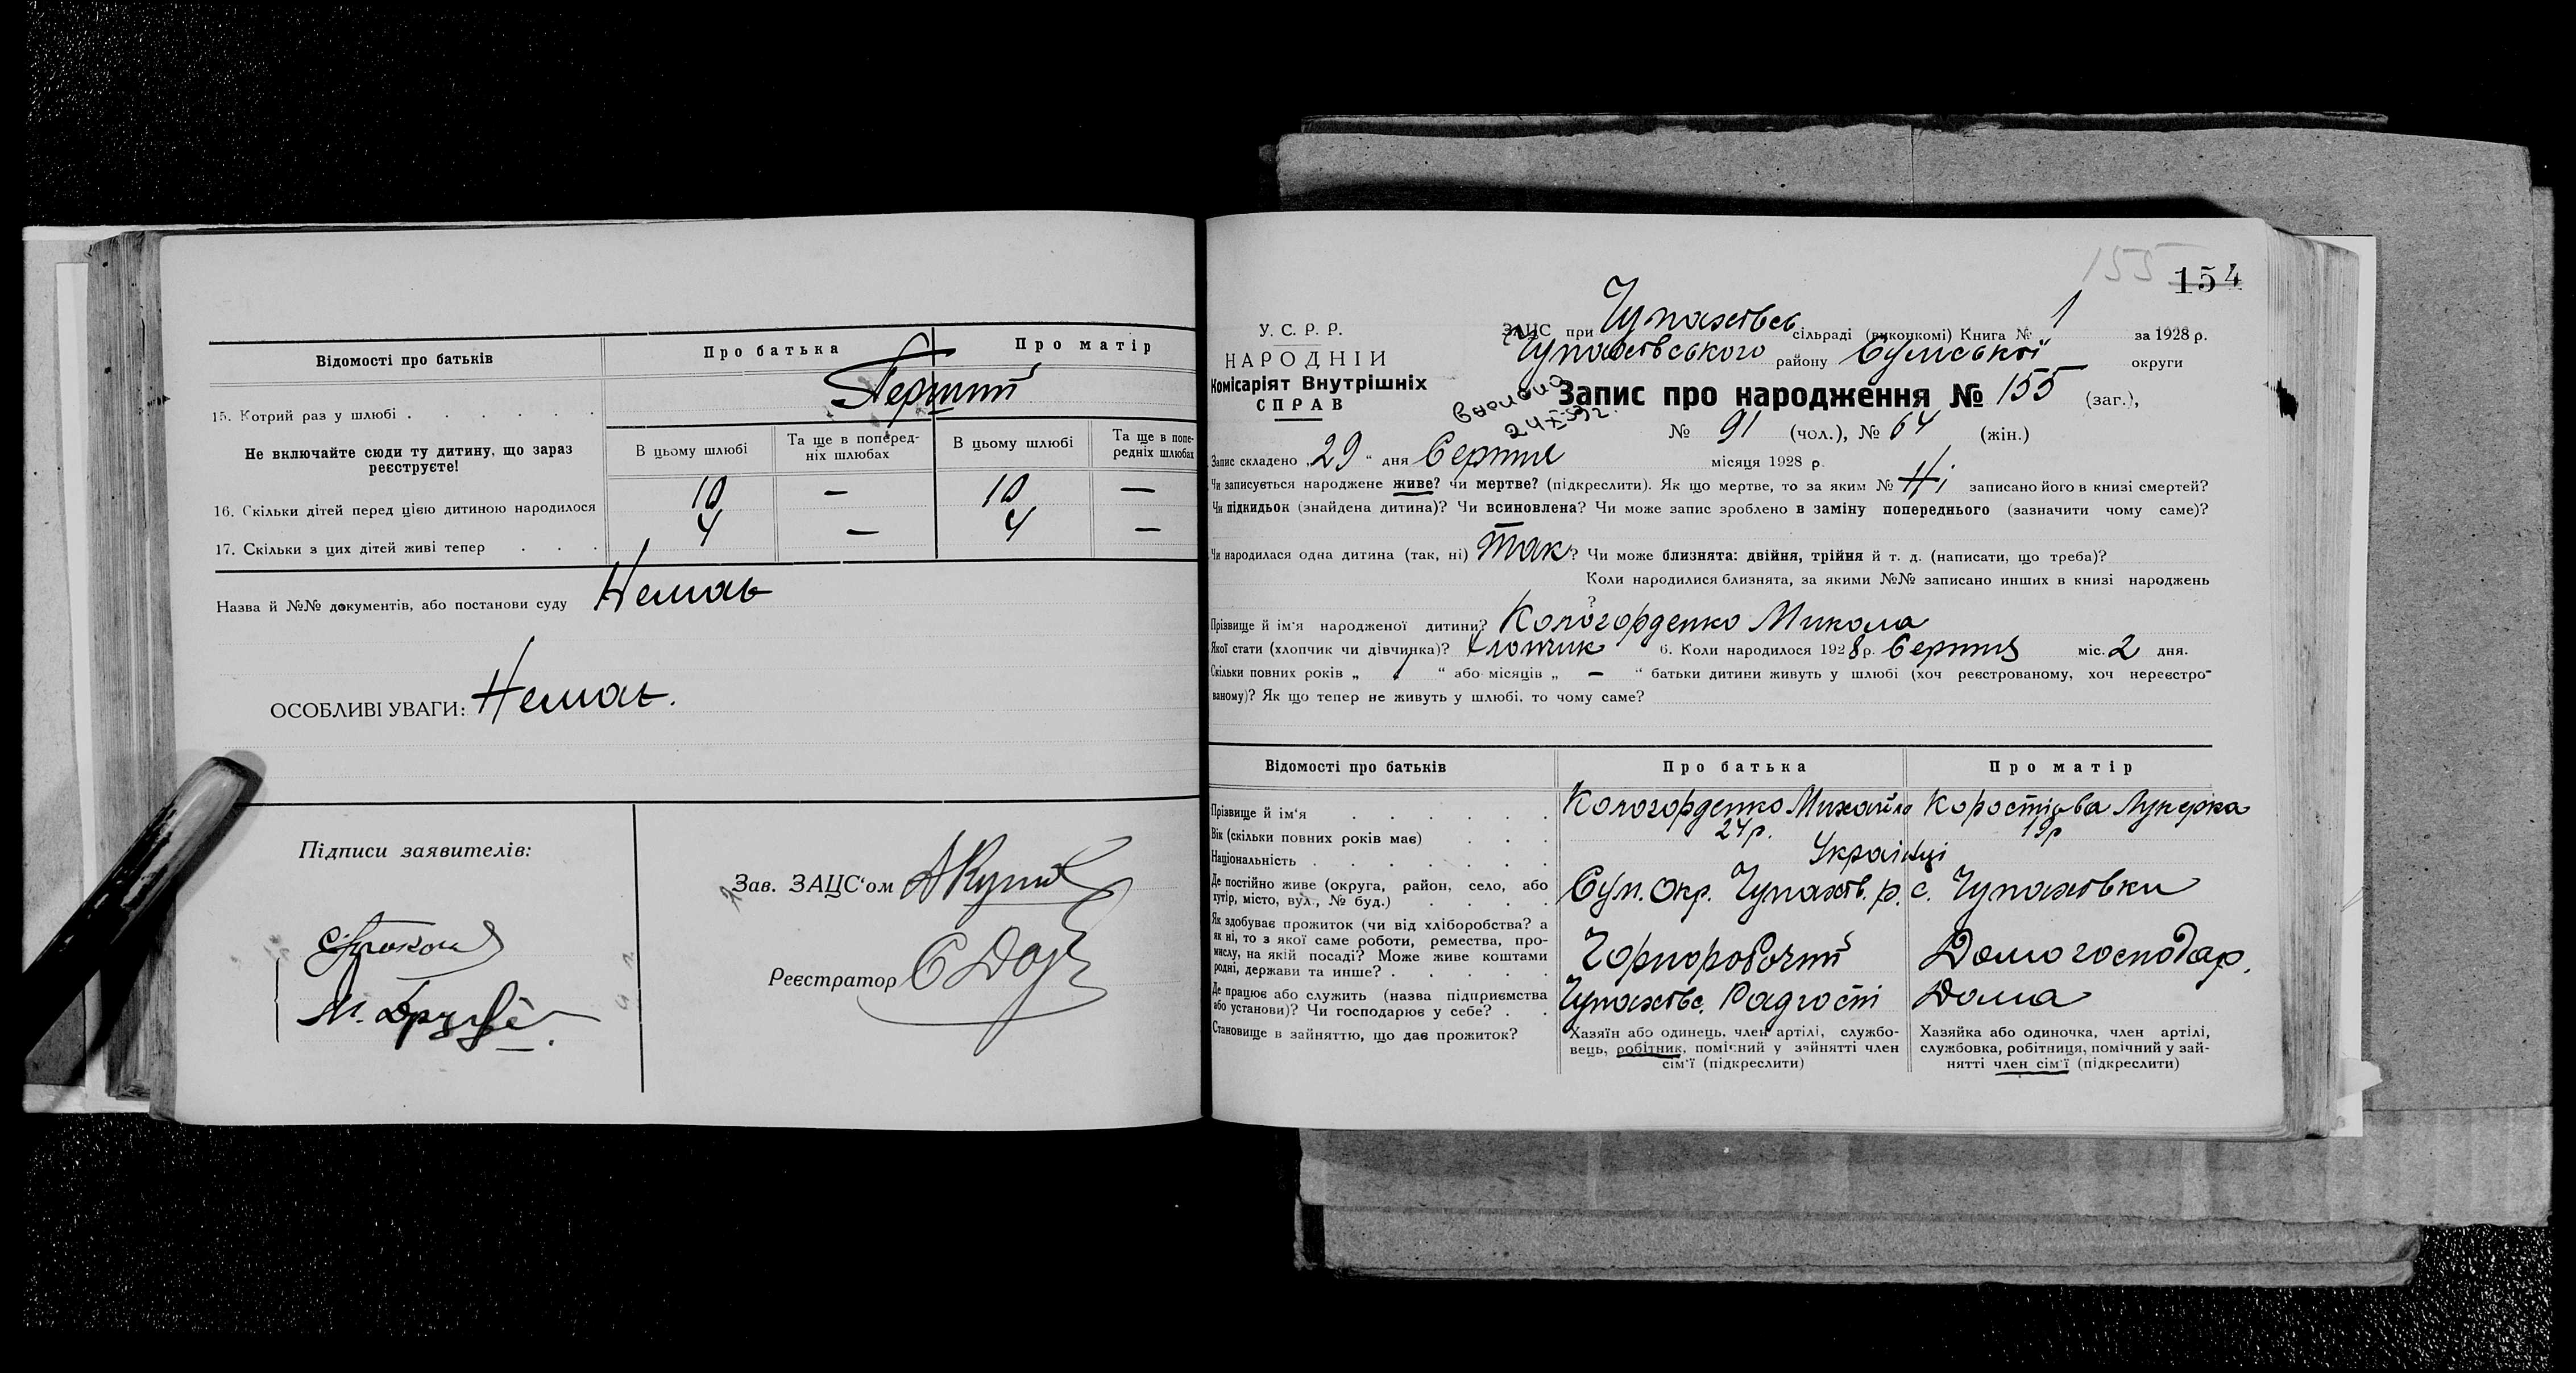 Відомості про батьків
Про батька
Про матір
15. Котрий раз у шлюбі
Перший
Не включайте сюди ту дитину, що зараз
реєструєте!
В цьому шлюбі
Та ще в поперед-
ніх шлюбах
В цьому шлюбі
Та ще в попе-
редніх шлюбах
16. Скільки дітей перед цією дитиною народилося
10 — 10 —
17. Скільки з цих дітей живі тепер
4 — 4 —
Назва й №№ документів, або постанови суду Немає
ОСОБЛИВІ УВАГИ: Немає.
Підписи заявителів:
Зав. ЗАЦС'ом
Реєстратор
М.
155 154
У. С. Р. Р.
НАРОДНІЙ
Комісаріят Внутрішніх
СПРАВ
ЗАЦС при Чупахівсь сільраді (виконкомі) Книга № 1 за 1928 р.
Чупахівського району Сумської округи
Запис про народження № 155 (заг.),
№ 91 (чол.), № 64 (жін.)
Запис складено „29“ дня Серпня місяця 1928 р.
Чи записується народжене живе? чи мертве? (підкреслити). Як що мертве, то за яким № Ні записано його в книзі смертей?
Чи підкидьок (знайдена дитина)? Чи всиновлена? Чи може запис зроблено в заміну попереднього (зазначити чому саме)?
Чи народилася одна дитина (так, ні) Так? Чи може близнята: двійня, трійня й т. д. (написати, що треба)?
Коли народилися близнята, за якими №№ записано инших в книзі народжень
?
Прізвище й ім'я народженої дитини? Кологорденко Микола
Якої стати (хлопчик чи дівчинка)? Хлопчик 6. Коли народилося 1928 р. Серпня міс. 2 дня.
Скільки повних років „ 1 “ або місяців „ — “ батьки дитини живуть у шлюбі (хоч реєстрованому, хоч нереєстро-
ваному)? Як що тепер не живуть у шлюбі, то чому саме?
Відомості про батьків
Про батька
Про матір
Прізвище й ім'я
Кологорденко Михайло
Вік (скільки повних років має)
24 р.
19 р
Національність
Українці
Де постійно живе (округа, район, село, або
хутір, місто, вул., № буд.)
Сум. Окр. Чупахів. р. с. Чупахівки
Як здобуває прожиток (чи від хліборобства? а
як ні, то з якої саме роботи, ремества, про-
мислу, на якій посаді? Може живе коштами
родні, держави та инше?
Чорноробочий
Домогосподар.
Де працює або служить (назва підприємства
або установи)? Чи господарює у себе?
Чупахівс. Радгоспі
Дома
Становище в зайняттю, що дає прожиток?
Хазяїн або одинець, член артілі, службо-
вець, робітник, помічний у зайнятті член
сім'ї (підкреслити)
Хазяйка або одиночка, член артілі,
службовка, робітниця, помічний у зай-
нятті член сім'ї (підкреслити)